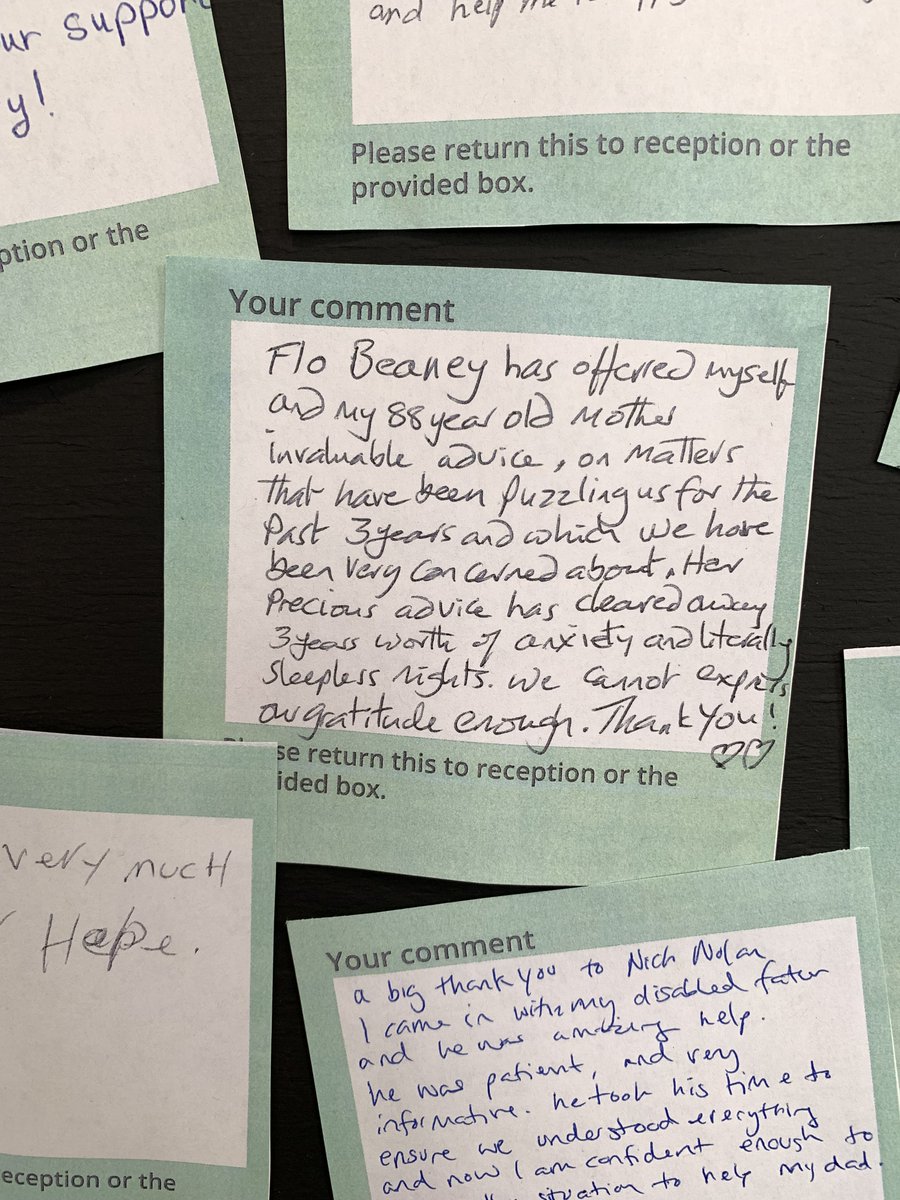 ur support
y!
ption or the
and help me
Please return this to reception or the
provided box.
Your comment
Flo Beaney has offerred myself
and my 88 year old Mother
invaluable advice, on matters
that have been puzzling us for the
past 3 years and which we have
been very concerned about. Her
precious advice has cleared away
3 years worth of anxiety and literally
sleepless nights. we cannot express
our gratitude enough. Thank you!
se return this to reception or the
ided box.
very much
Hope.
eception or the
Your comment
a big thank you to Nich Nolan
I came in with my disabled father
and he was amazing help.
he was patient, and very
informative. he took his time to
ensure we understood everything
and now I am confident enough to
situation to help my dad.